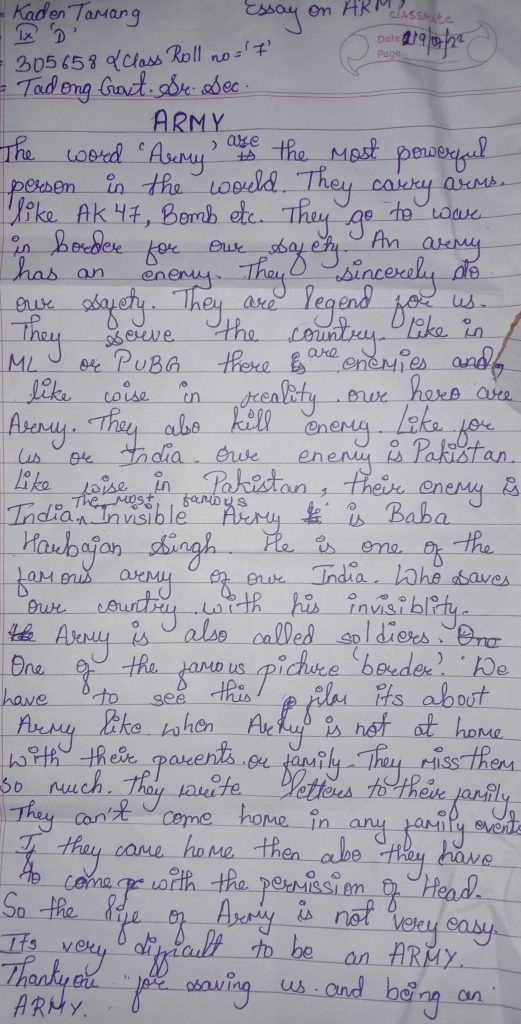 Kaden Tamang
Essay on ARMY
IX 'D'
classmate
Date 2/9/07/22
Page
305658 Class Roll no = '7'
Tadong Govt. Sr. Sec.
ARMY
The word 'Army' are the most powerful
person in the world. They carry arms.
like AK 47, Bomb etc. They go to war
in border for our safety. An army
has an enemy. They sincerely do
our safety. They are legend for us.
They serve the country. Like in
ML or PUBG there are enemies and,
like wise in reality our hero are
Army. They also kill enemy. Like for
us or India. Our enemy is Pakistan.
Like wise in Pakistan, their enemy is
The most famous
Indian Invisible Army is Baba
Harbajan Singh. He is one of the
famous army of our India. Who saves
our country with his invisiblity.
Army is also called soldiers.
One of the famous picture 'border'. We
have to see this film its about
Army like when Army is not at home
with their parents or family. They miss them
so much. They write letters to their family
They can't come home in any family events
If they came home then also they have
to come with the permission of Head.
So the life of Army is not very easy.
Its very difficult to be an ARMY.
Thankyou for saving us and being an
ARMY.